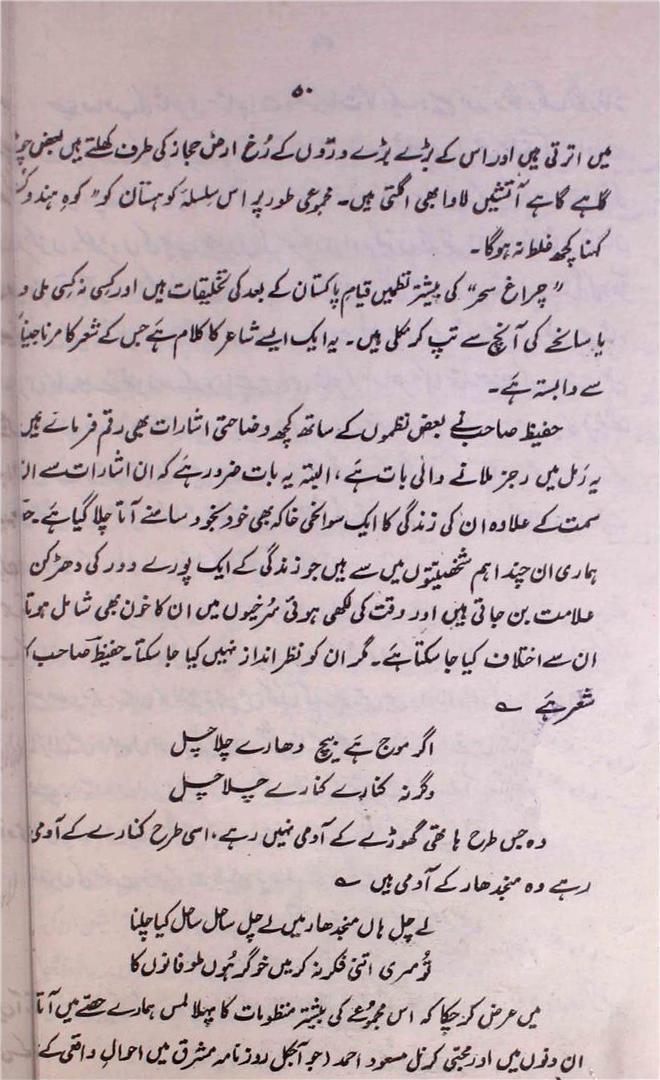 ۵۰
میں اترتی ہیں اور اس کے بڑے بڑے دروں کے رُخ ارضِ حجاز کی طرف کھلتے ہیں بعض
گاہے گاہے آتشیں لاوا بھی اگلتی ہیں۔ مجموعی طور پر اس سلسلۂ کوہستان کو "کوہِ ہندو
کہنا کچھ غلط نہ ہوگا۔
"چراغِ سحر" کی بیشتر نظمیں قیامِ پاکستان کے بعد کی تخلیقات ہیں اور کسی نہ کسی ملی و
یا سانحے کی آنچ سے تپ کر نکلی ہیں۔ یہ ایک ایسے شاعر کا کلام ہے جس کے شعر کا مرنا جینا
سے وابستہ ہے۔
حفیظ صاحب نے بعض نظموں کے ساتھ کچھ وضاحتی اشارات بھی رقم فرمائے ہیں
یہ رَمل میں رجز ملانے والی بات ہے، البتہ یہ بات ضرور ہے کہ ان اشارات سے
سمت کے علاوہ ان کی زندگی کا ایک سوانحی خاکہ بھی خود بخود سامنے آتا چلا گیا ہے۔
ہماری ان چند اہم شخصیتوں میں سے ہیں جو زندگی کے ایک پورے دور کی دھڑکن
علامت بن جاتی ہیں اور وقت کی لکھی ہوئی سُرخیوں میں ان کا خون بھی شامل ہوتا
ان سے اختلاف کیا جا سکتا ہے۔ مگر ان کو نظر انداز نہیں کیا جا سکتا۔ حفیظ صاحب
شعر ہے ؎
اگر موج ہے بیچ دھارے چلا چل
وگرنہ کنارے کنارے چلا چل
وہ جس طرح ہاتھی گھوڑے کے آدمی نہیں رہے، اسی طرح کنارے کے آدمی
رہے وہ منجدھار کے آدمی ہیں ؎
لے چل ہاں منجدھار میں لے چل ساحل ساحل کیا چلنا
تُو مری اتنی فکر نہ کر میں خوگر ہُوں طوفانوں کا
میں عرض کر چکا کہ اس مجموعے کی بیشتر منظومات کا پہلا لمس ہمارے حصّے میں آتا
ان دنوں میں اور مجتبی کرنل مسعود احمد (جو آجکل روزنامہ مشرق میں احوالِ واقعی کے